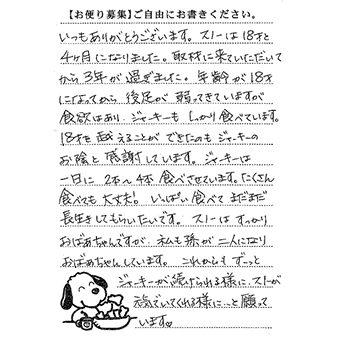 【お便り募集】ご自由にお書きください。
いつもありがとうございます。スノーは18才と
4ヶ月になりました。取材に来ていただいて
から3年が過ぎました。年齢が18才
になってから後足が弱ってきていますが
食欲はあり、ジャーキーもしっかり食べています。
18才を越えることができたのもジャーキーの
お陰と感謝しています。ジャーキーは
一日に2本〜4本食べさせています。たくさん
食べても大丈夫。いっぱい食べてまだまだ
長生きしてもらいたいです。スノーはすっかり
おばあちゃんですが、私も孫が二人になり
おばあちゃんしています。これからもずーっと
ジャーキーが続けられる様に、スノーが
元気でいてくれる様に…と願って
います♡